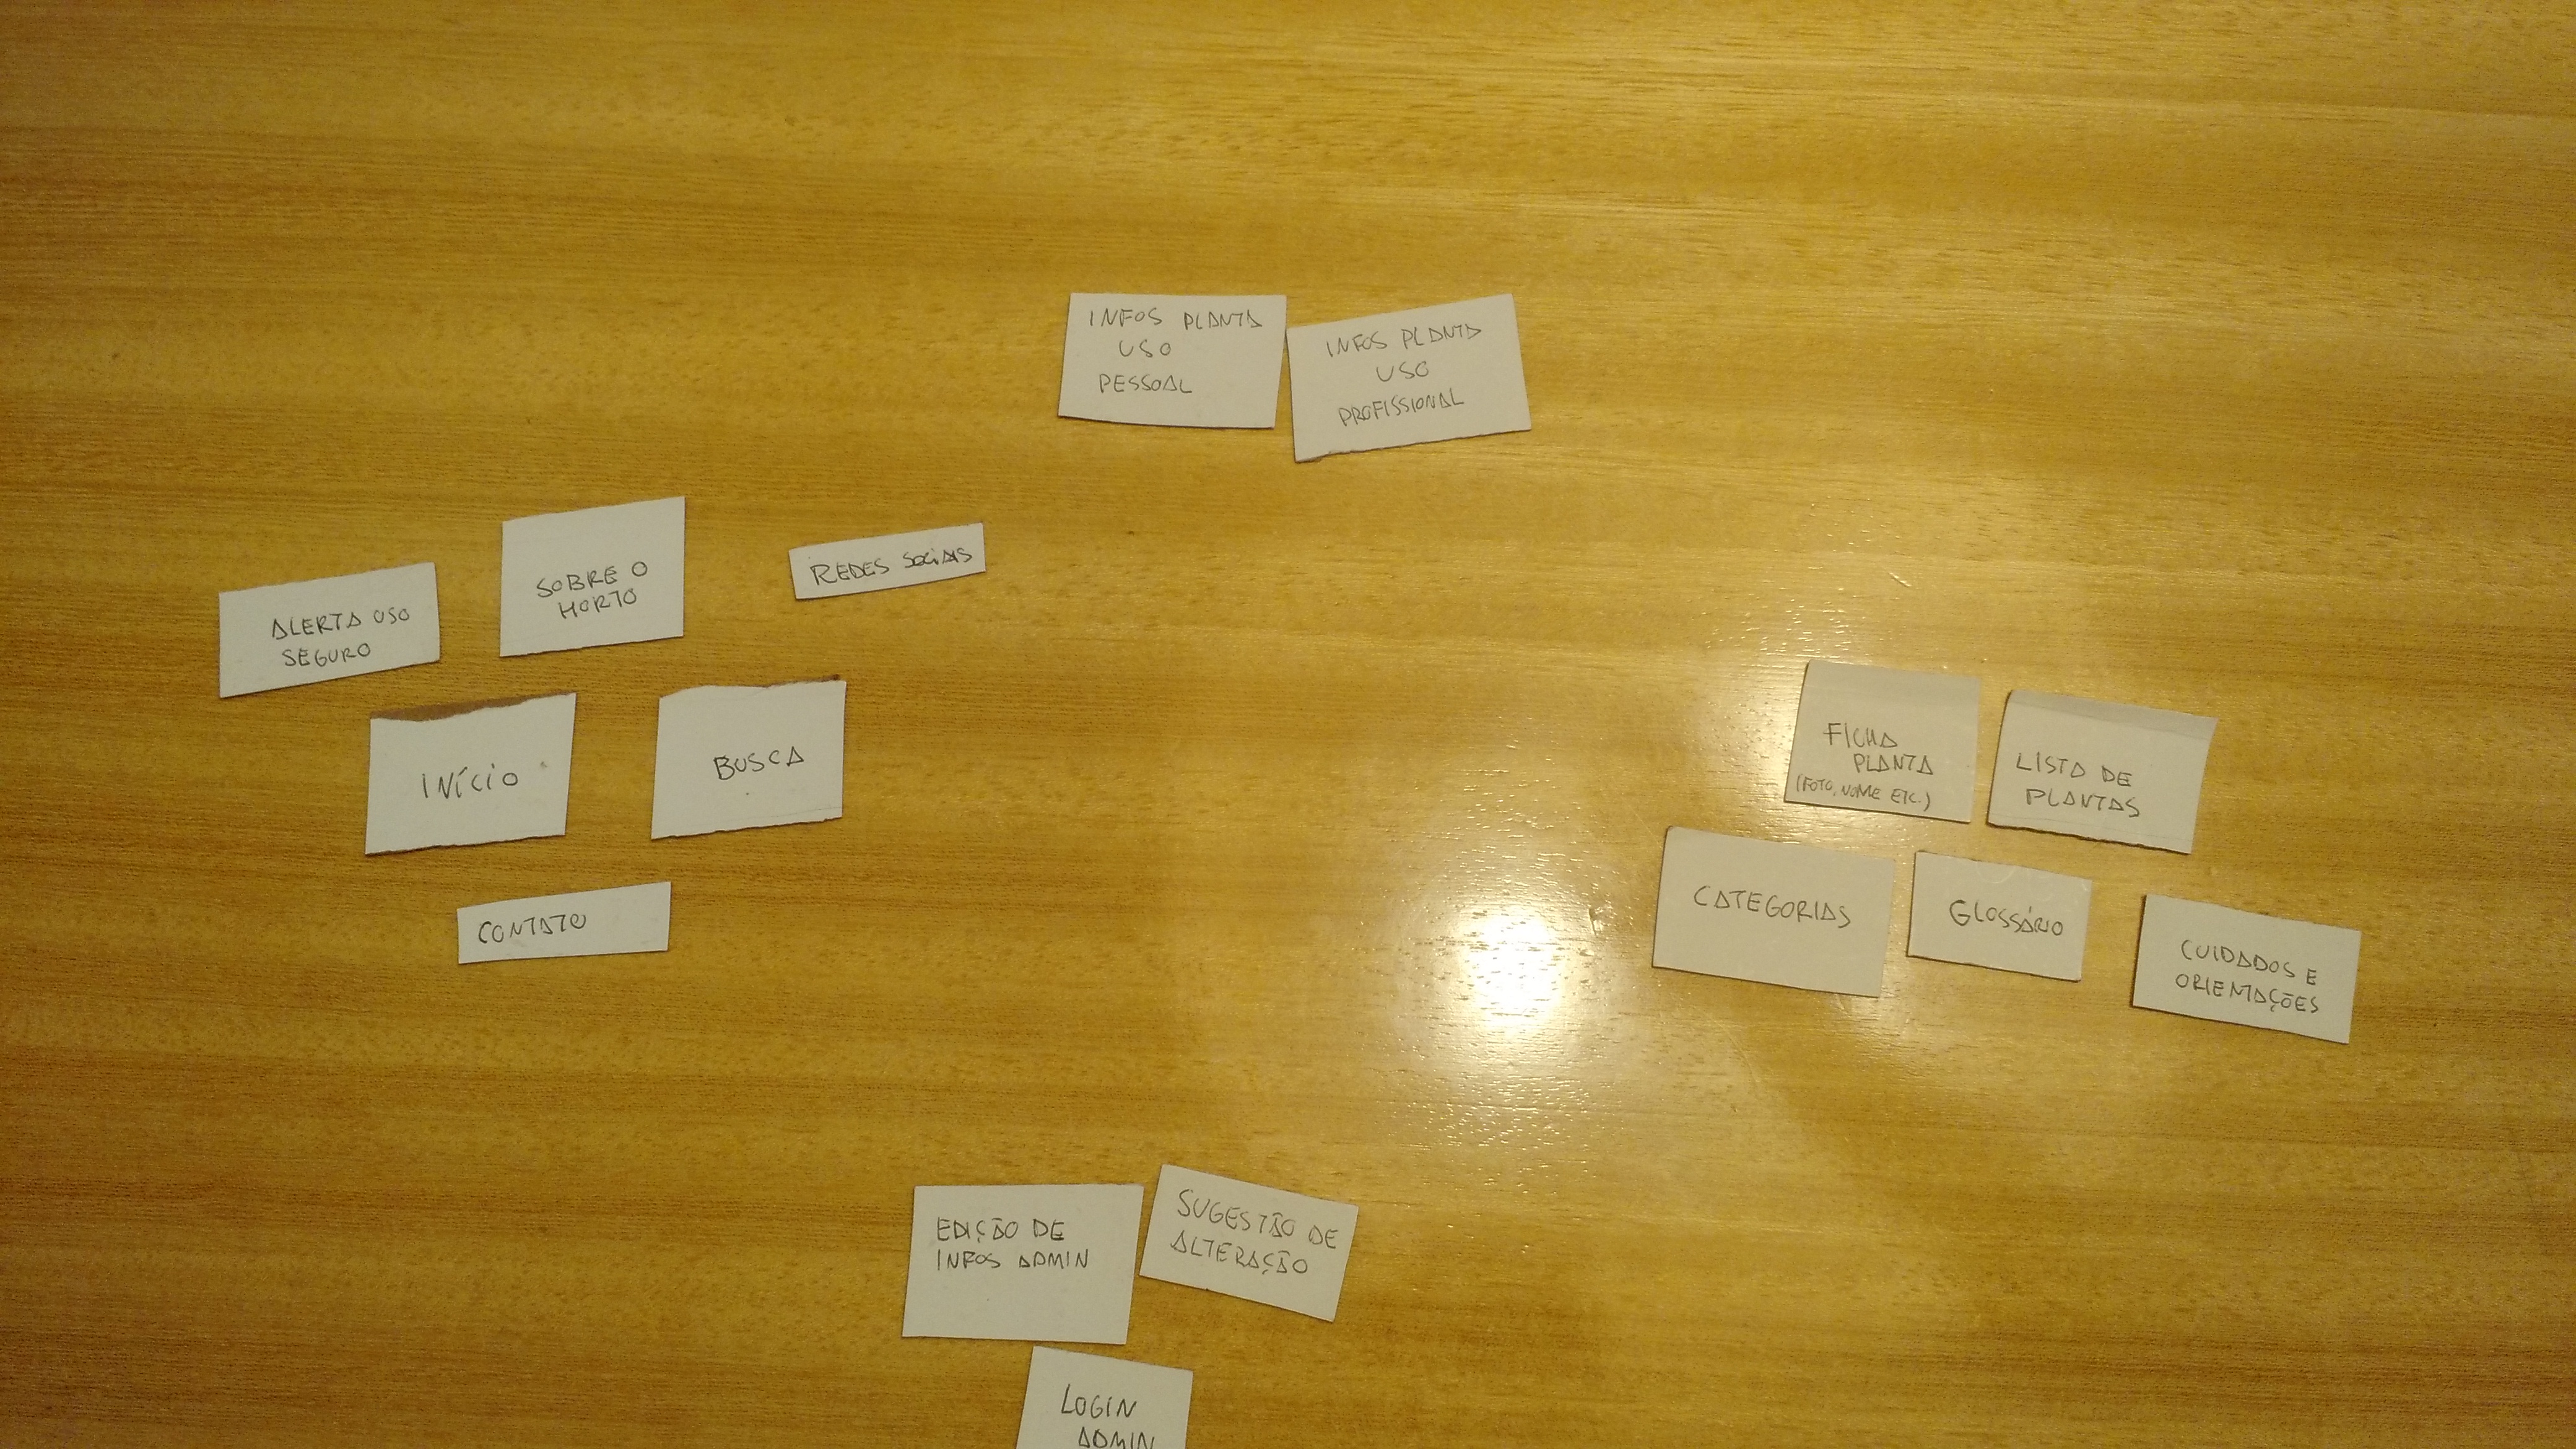 INFOS PLANTA
USO
PESSOAL
INFOS PLANTA
USO
PROFISSIONAL
ALERTA USO
SEGURO
SOBRE O
HORTO
REDES SOCIAIS
INÍCIO
BUSCA
CONTATO
FICHA
PLANTA
(FOTO, NOME ETC.)
LISTA DE
PLANTAS
CATEGORIAS
GLOSSÁRIO
CUIDADOS E
ORIENTAÇÕES
EDIÇÃO DE
INFOS ADMIN
SUGESTÃO DE
ALTERAÇÃO
LOGIN
ADMIN